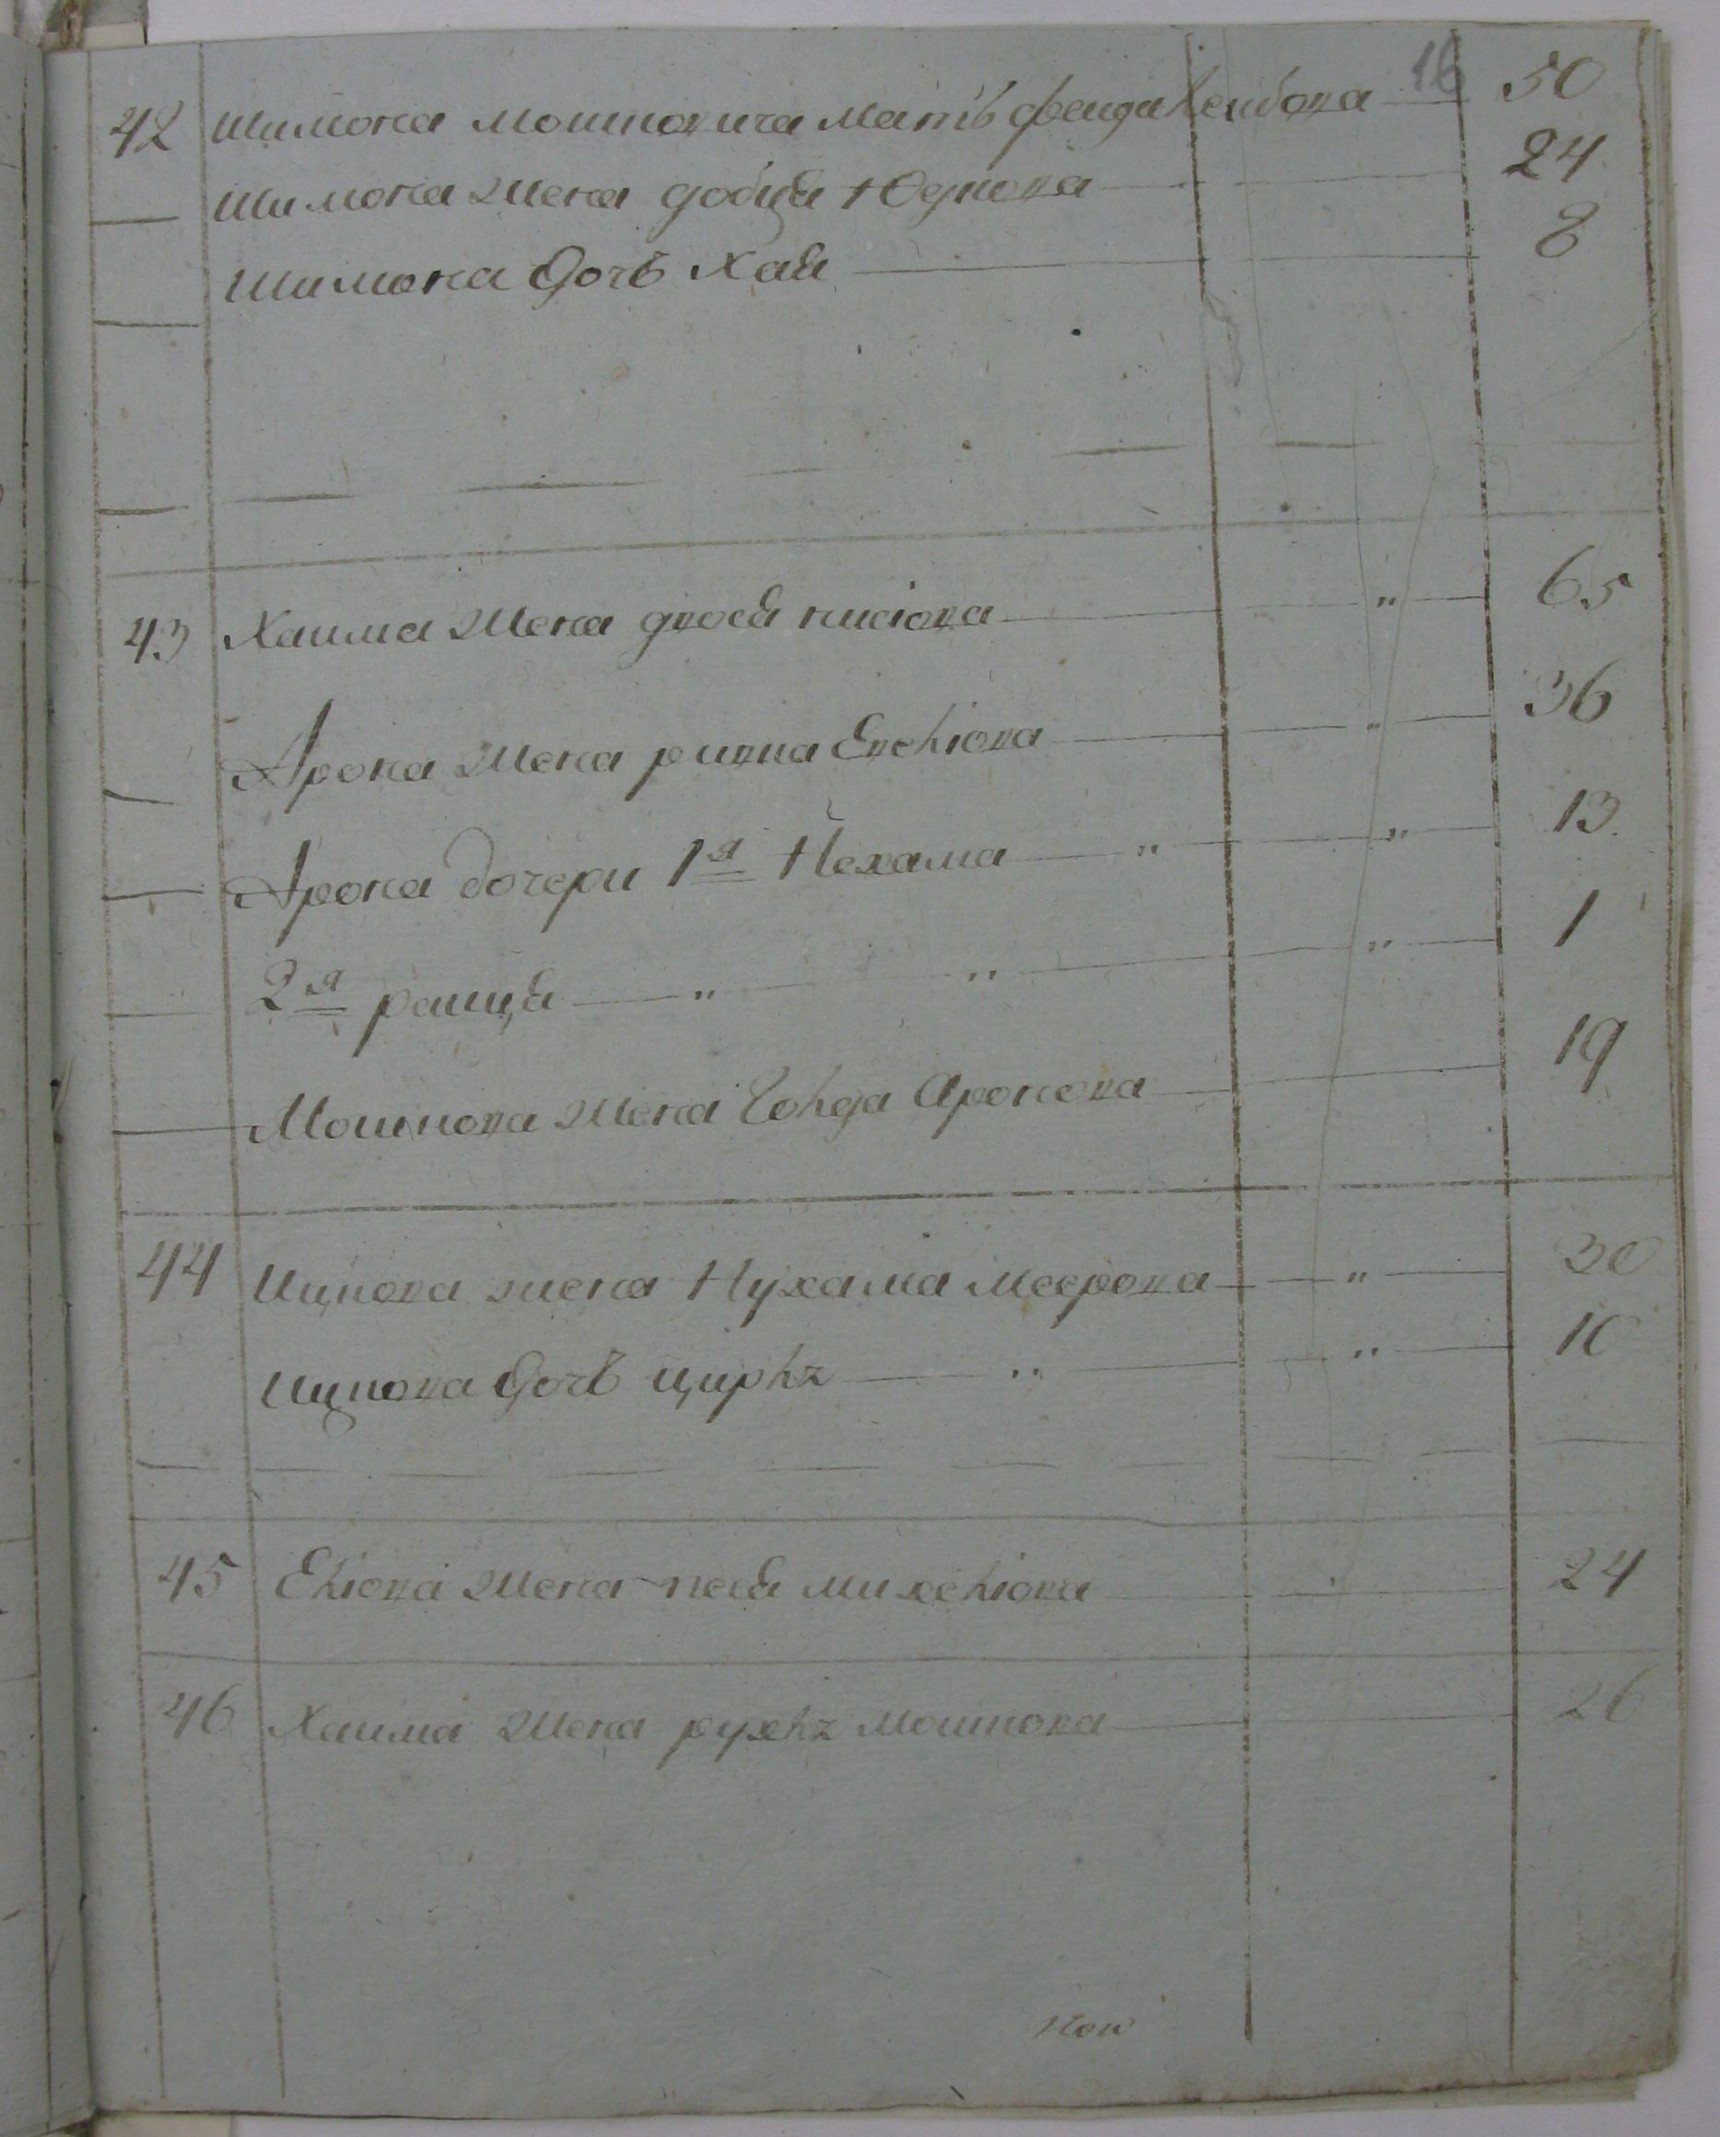 16
42 Шимона Мошковича мать фейда Лейбова 50
Шимона жена добця Юдкова 24
Шимона дочь Хая 8
43 Хаима жена двося нисіова " 65
Арона жена ривка Евеліова " 36
Арона дочери 1я Нехама " " 13
2я раица " " " 1
Мошкова жена Голда Аронова 19
44 Ицкова жена Нухама Меерова " 30
Ицкова дочь цирль " " 10
45 Еліова жена песя михеліова 24
46 Хаима жена рухль Мошкова 26